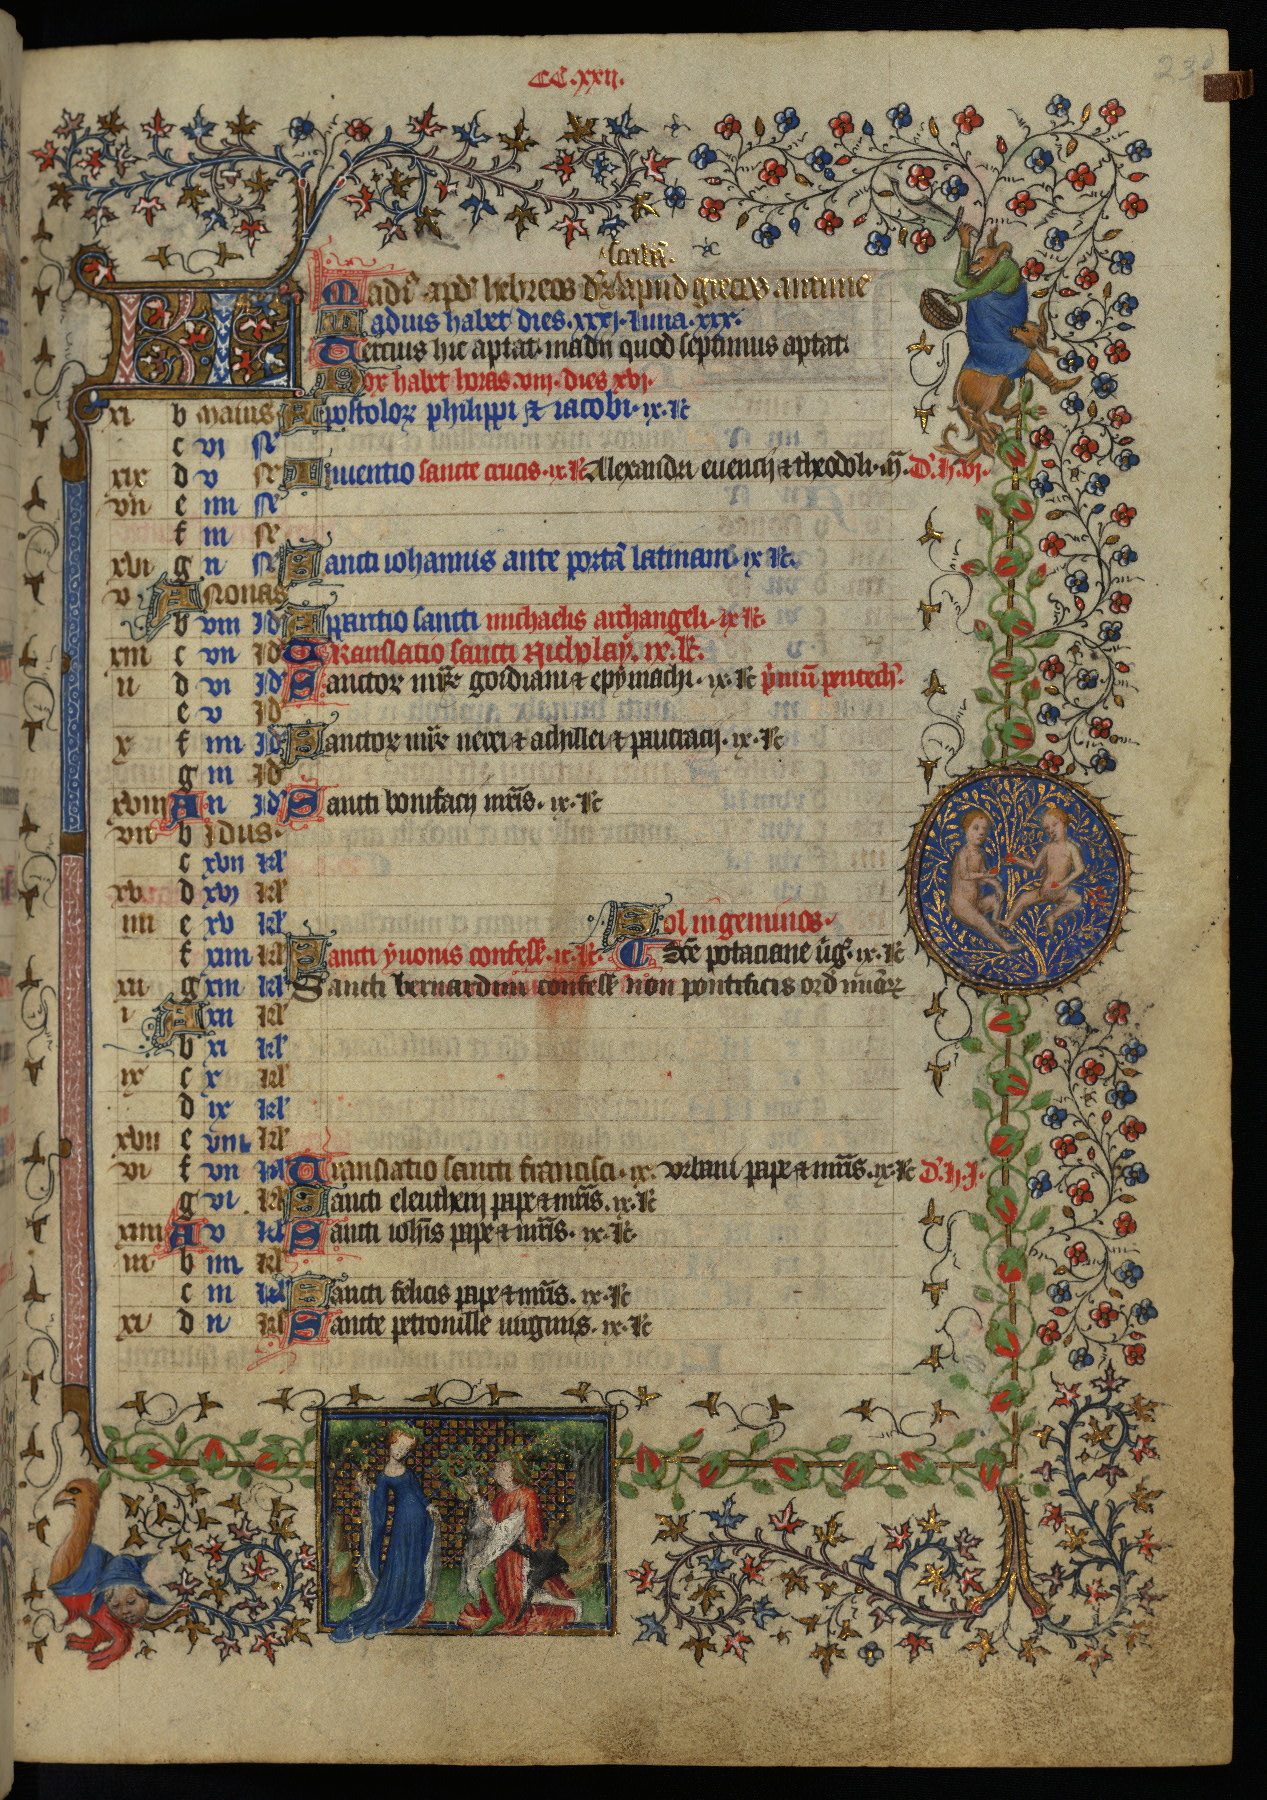 CC.xxii.
KL
Madius habet dies .xxxj. luna .xxx.
Tercius hic aptat. madii quod septimus aptat.
Nox habet horas .viii. dies xvi.
xi b maius Apostolor philippi et iacobi. ix. lc
c vi
xix d v Inuentio sancte crucis. ix. lc Alexandri euencij et theodoli. D. h. vi.
viii e iiii
f iii
xvi g ii Sancti iohannis ante portā latinam. ix lc.
v A nonas
b viii Id Apparitio sancti michaelis archangeli. ix lc.
xiii c vii Id Translatio sancti Nicholay. ix. lc.
ii d vi Id Sanctor gordiani et epymachi. ix. lc
e v Id
x f iiii Id Sanctor nerei et achillei et pancracij. ix. lc
g iii Id
xviii A ii Id Sancti bonifacij mris. ix. lc
vii b Idus.
c xvii kl
xv d xvj kl
iiii e xv kl Sol in geminos.
f xiiii kl Sancti yuonis confess. ix. lc. potaciane ix. lc
xii g xiii kl Sancti bernardini confess non pontificis ord minor
i A xii kl
b xi kl
ix c x kl
d ix kl
xvii e viii kl
vi f vii kl Translatio sancti francisci. ix. vrbani pape et mris. ix. lc D. h. j.
g vi kl Sancti eleutherij pape et mris. ix. lc
xiiii A v kl Sancti iohis pape et mris. ix. lc.
iii b iiii kl
c iii kl Sancti felicis pape et mris. ix. lc
xi d ii kl Sancte petronille uirginis. ix. lc